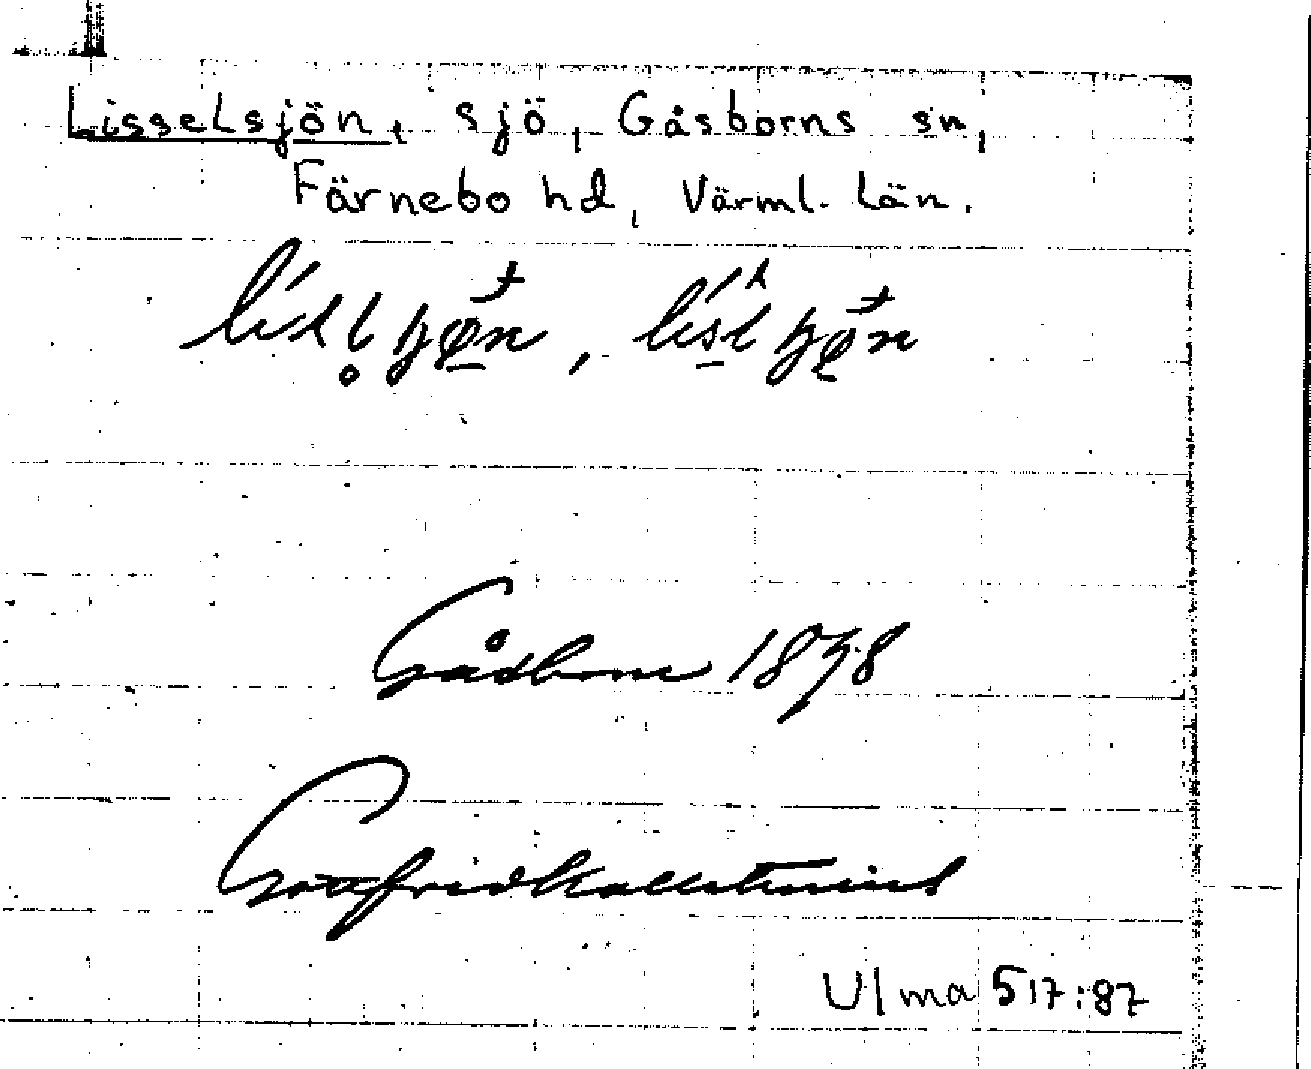 Lisselsjön, sjö, Gåsborns sn,
Färnebo hd, Värml. län.
Gåsborn 1898
Gottfrid Kallstenius
Ulma 517:87